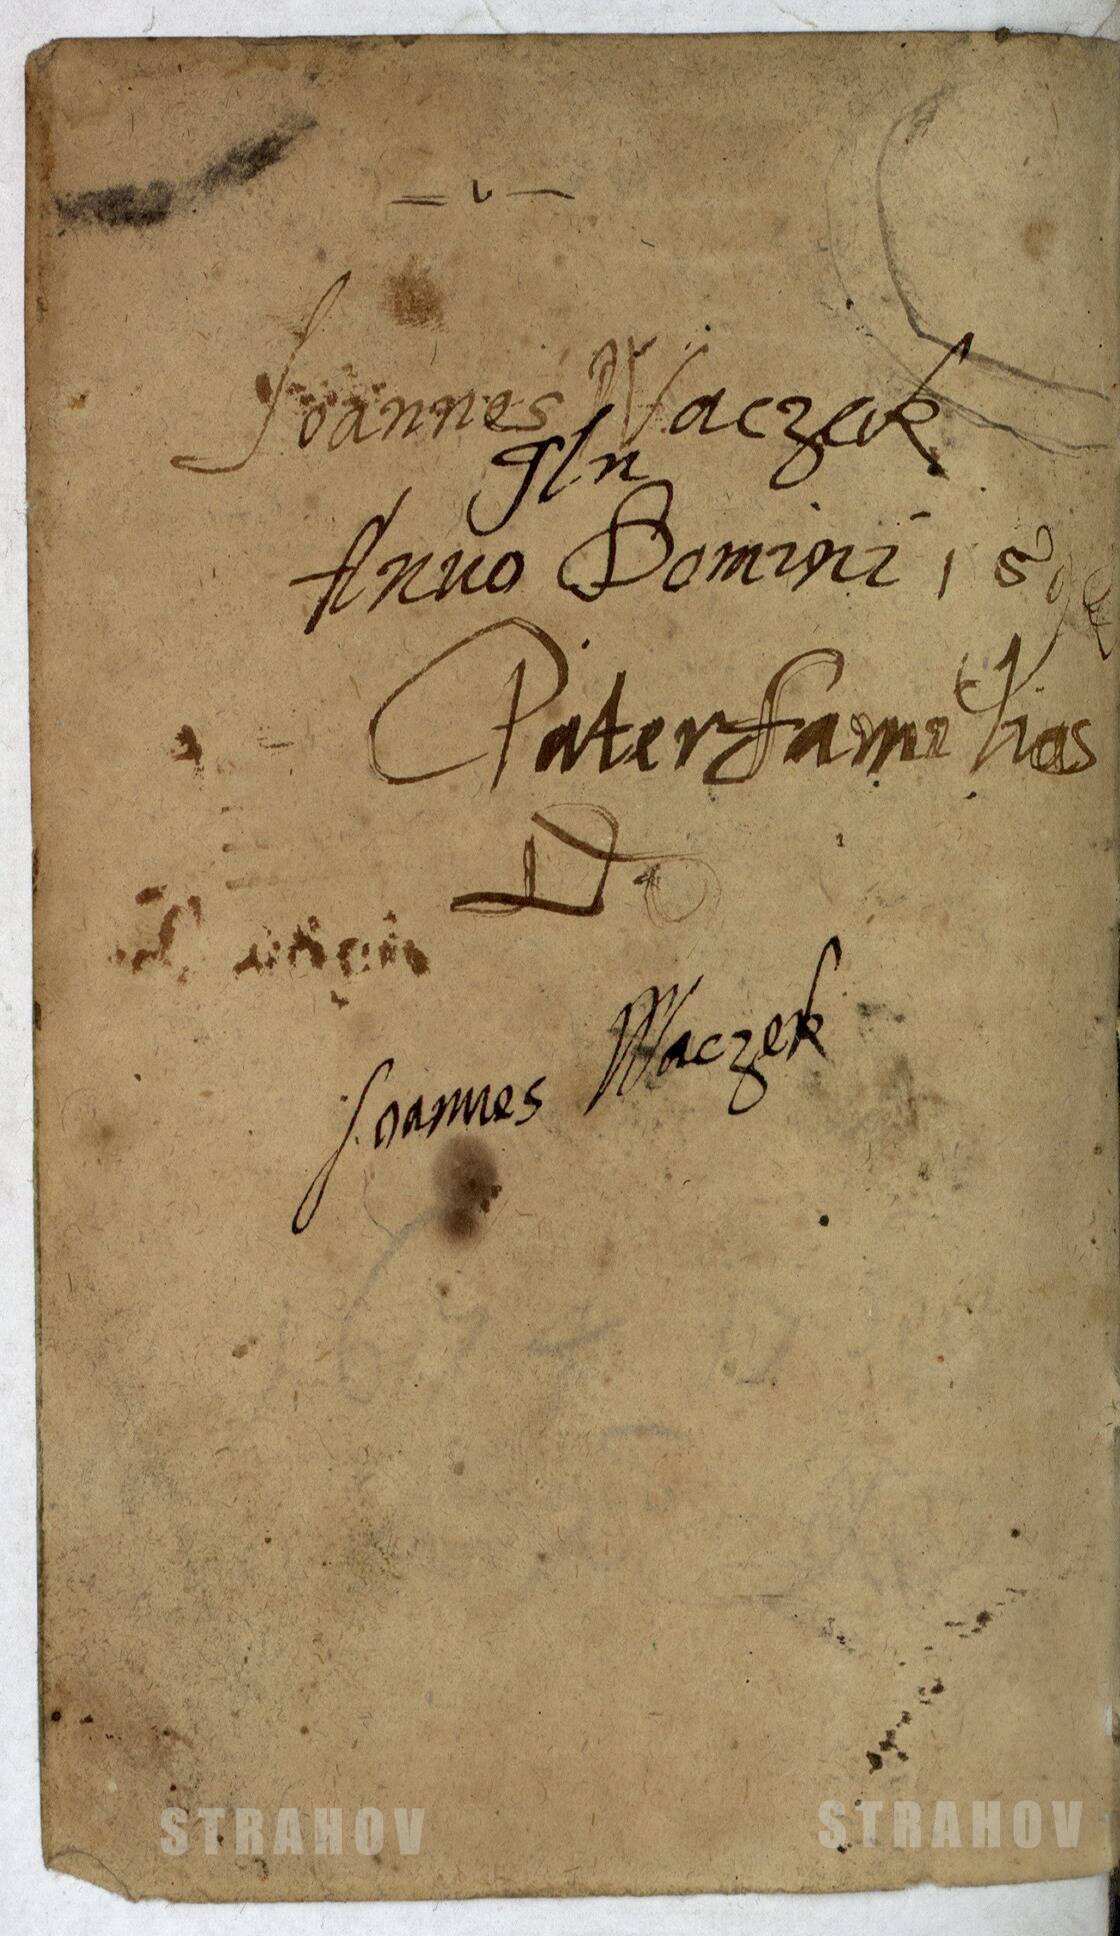 Joannes Waczek
In
Anno Domini 159
Paterfamilias
D
Joannes Waczek
STRAHOV STRAHOV